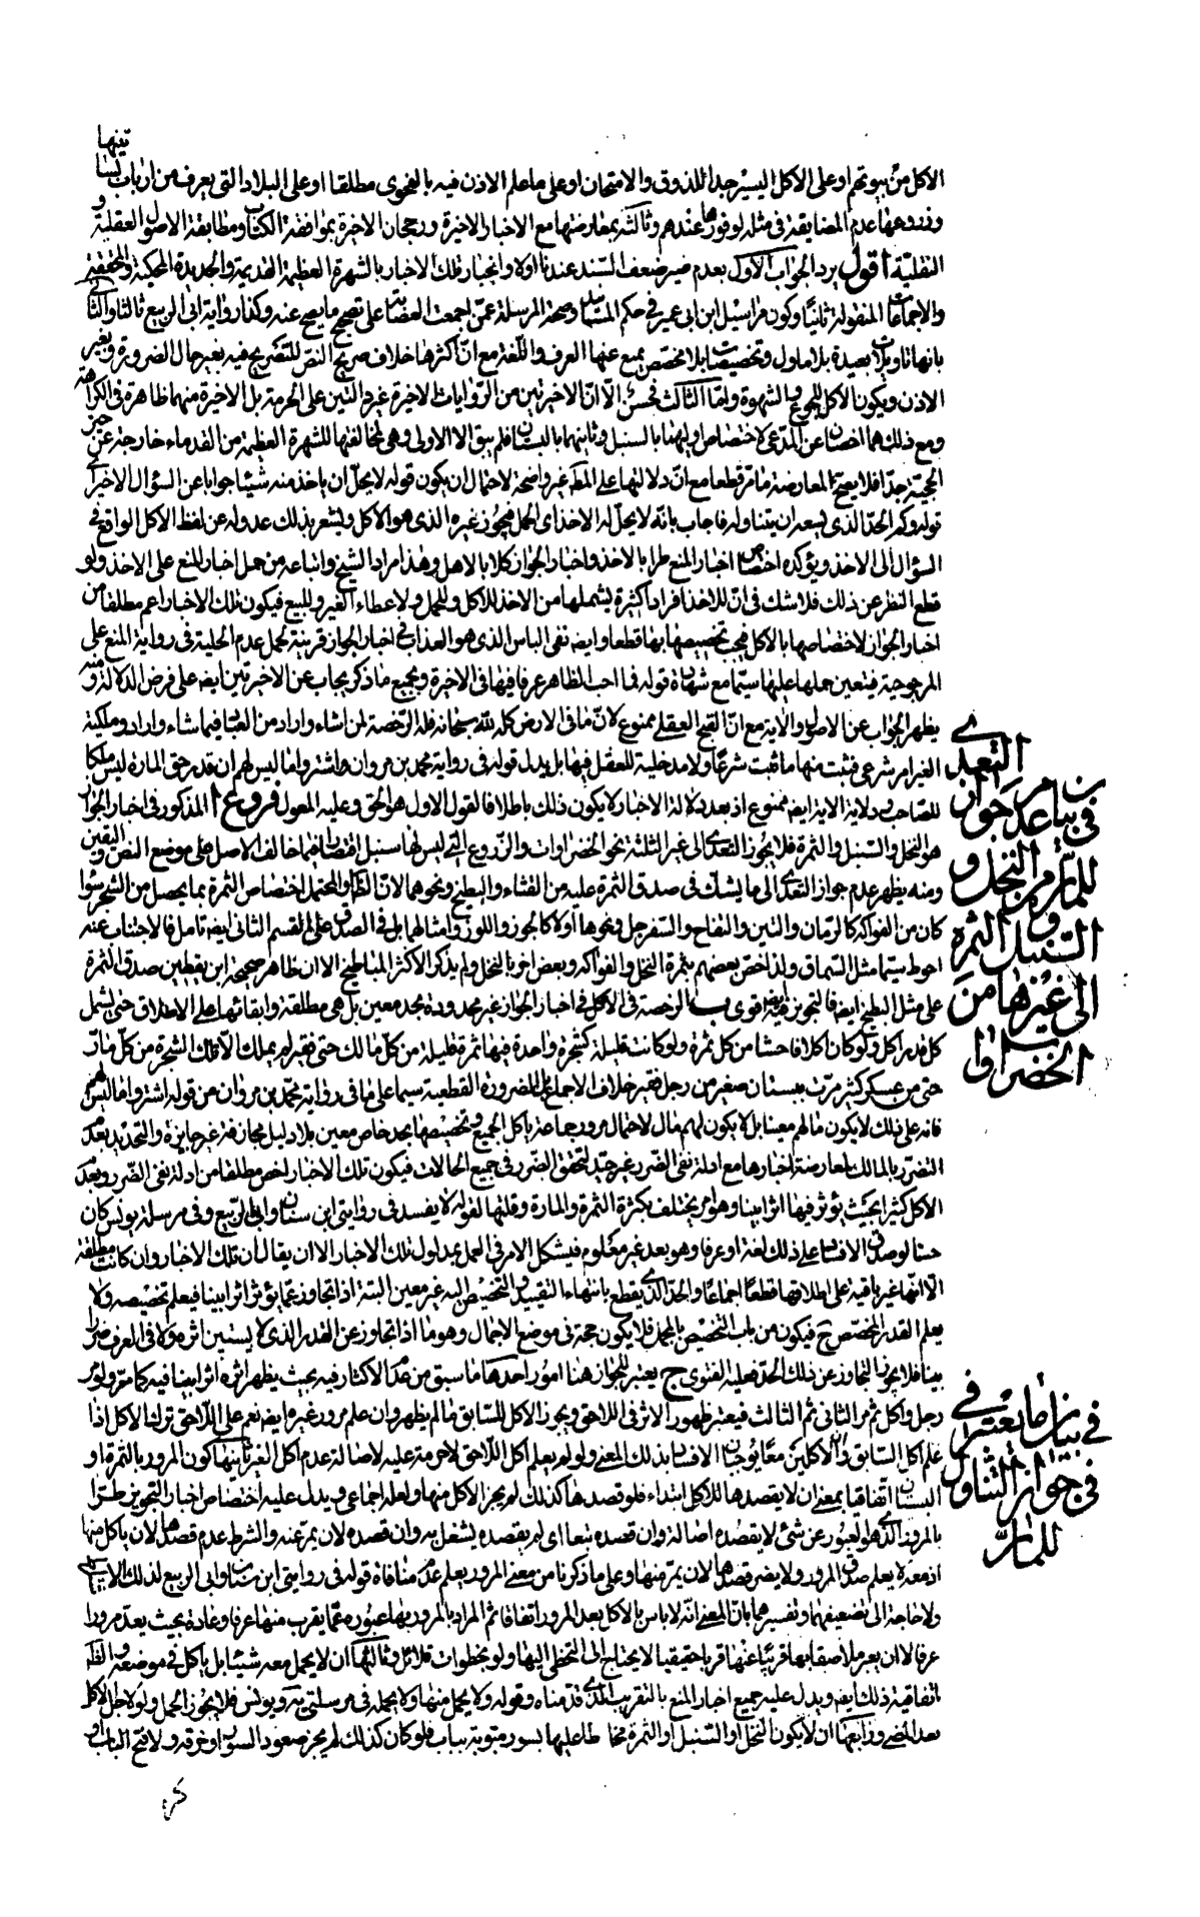 الاكل من بيوتهم او على الاكل اليسير جدا للذوق والامتحان او على ما علم الاذن فيه بالفحوى مطلقا او على البلاد التي يعرف من ارباب بساتينها
وزروعها عدم المضايقة في مثله لوفورها عندهم وثالثه بمعارضتها مع الاخبار الاخيرة ورجحان الاخيرة بموافقة الكتاب ومطابقة الاصول العقلية و
النقلية اقول يرد الجواب الاول بعدم ضير ضعف السند عندنا اولا وانجبار تلك الاخبار بالشهرة العظيمة القديمة والجديدة المحكية والمحققة
والاجماعات المنقولة ثانيا وكون مراسيل ابن ابي عمير في حكم المسانيد وصحة المرسلة عمن اجمعت العصابة على تصحيح ما يصح عنه وكذا رواية ابي الربيع ثالثا والثاني
بانها تاويلات بعيدة بلا ماول وتخصيصات بلا مخصص يمنع عنها العرف واللغة مع ان اكثرها خلاف صريح النص للتصريح فيه بغير حال الضرورة وبغير
الاذن ويكون الاكل للجوع والشهوة واما الثالث فحسن الا ان الاخيرتين من الروايات الاخيرة غير دالتين على الحرمة بل الاخيرة منهما ظاهرة في الكراهة
ومع ذلك هما اخصان عن المدعى لاختصاص اوليهما بالسنبل وثانيهما بالبستان فلم يبق الا الاولى وهي لمخالفتها للشهرة العظيمة من القدماء خارجة عن حيز
الحجية جدا فلا يصح لمعارضة ما مر قطعا مع ان دلالتها على المنع غير واضحة لاحتمال ان يكون قوله لا يحل ان ياخذ منه شيئا جوابا عن السؤال الاخير اي
قوله وكم الحد الذي يسعه ان يتناوله فاجاب بانه لا يحل له الاخذ اي الحمل فيجوز غيره الذي هو الاكل ويشعر بذلك عدوله عن لفظ الاكل الواقع في
السؤال الى الاخذ ويؤكده اختصاص اخبار المنع طرا بالاخذ واخبار الجواز كلا بالاكل وهذا مراد الشيخ واتباعه من حمل اخبار المنع على الاخذ ولو
قطع النظر عن ذلك فلا شك في ان للاخذ افرادا كثيرة يشملها من الاخذ للاكل وللحمل ولاعطاء الغير وللبيع فيكون تلك الاخبار اعم مطلقا من
اخبار الجواز لاختصاصها بالاكل فيجب تخصيصها بها قطعا وايضا نفي الباس الذي هو العذاب في اخبار الجواز قرينة لحمل عدم الحلية في رواية المنع على
المرجوحية فيتعين حملها عليها سيما مع شهادة قوله في احب الظاهر عرفا فيها في الاخيرة وبجميع ما ذكر يجاب عن الاخيرتين ايضا على فرض الدلالة ومنه
يظهر الجواب عن الاصول والاية مع ان القبح العقلي ممنوع لان ما في الارض كله لله سبحانه فله الرخصة لمن شاء واراد من العباد فيما شاء واراد وملكية
الغير امر شرعي فثبت منها ما ثبت شرعا ولا مدخلية للعقل فيها بل يدل قوله في رواية محمد بن مروان واشتروا ما ليس لهم ان قدر حق المارة ليس ملكا
للصاحب ودلالة الاية ايضا ممنوع اذ بعد دلالة الاخبار لا يكون ذلك باطلا فالقول الاول هو الحق وعليه المعول فروع ا المذكور في اخبار الجواز
هو النخل والسنبل والثمرة فلا يجوز التعدي الى غير الثلثة نحو الخضراوات والزروع التي ليس لها سنبل اقتصارا فيما خالف الاصل على موضع النص واليقين
ومنه يظهر عدم جواز التعدي الى ما يشك في صدق الثمرة عليه من القثاء والبطيخ ونحوهما لان الظاهر او المحتمل اختصاص الثمرة بما يحصل من الشجر سواء
كان من الفواكه كالرمان والتين والتفاح والسفرجل ونحوها او لا كالجوز واللوز وامثالهما بل في الصدق على القسم الثاني ايضا تامل فالاجتناب عنه
احوط سيما مثل السماق ولذا خص بعضهم بثمرة النخل والفواكه وبعض اخر بالنخل ولم يذكر الاكثر المباطيخ الا ان ظاهر صحيحة ابن يقطين صدق الثمرة
على مثل البطيخ ايضا فالتجويز فيه ايضا قوي ب الرخصة في الاكل في اخبار الجواز غير محدودة بحد معين بل هي مطلقة وابقائها على الاطلاق حتى يشمل
كل قدر اكل ولو كان اكلا فاحشا من كل ثمرة ولو كانت قليلة كشجرة واحدة فيها ثمرة قليلة من كل مالك حتى فقير لم يملك الا تلك الشجرة من كل مار
حتى من عسكر كثير مرت ببستان صغير من رجل فقير خلاف الاجماع بل الضرورة القطعية سيما على ما في رواية محمد بن مروان من قوله اشتروا ما ليس لهم
فانه على ذلك لا يكون ما لهم معينا بل لا يكون لهم مال لاحتمال مرور جماعة باكل الجميع وتخصيصها بحد خاص معين بلا دليل مجازفة غير جايزة والتحديد بعدم
التضرر بالمالك لمعارضة اخبارها مع ادلة نفي الضرر غير جيد لتحقق الضرر في جميع الحالات فيكون تلك الاخبار اخص مطلقا من ادلة نفي الضرر وبعدم
الاكل كثيرا بحيث يؤثر فيها اثرا بينا وهو امر يختلف بكثرة الثمرة والمارة وقلتها لقوله لا يفسد في روايتي ابن سنان وابي الربيع وفي مرسلة يونس كان
حسنا لو صدق الافساد على ذلك لغة او عرفا وهو بعد غير معلوم فيشكل الامر في العمل بمدلول تلك الاخبار الا ان يقال ان تلك الاخبار وان كانت مطلقة
الا انها غير باقية على اطلاقها قطعا اجماعا والحد الذي يقطع بانتهاء التقييد والتخصيص اليه غير معين البتة اذا تجاوز عما يؤثر اثرا بينا فيعلم تخصيصه ولا
يعلم القدر المخصص ح فيكون من باب التخصيص بالمجمل فلا يكون حجة في موضع الاجمال وهو ما اذا تجاوز عن القدر الذي لا يستبين اثره ولا في العرف ضررا
بينا فلا يجوز التجاوز عن ذلك الحد فعليه الفتوى ج يعتبر للجواز هنا امور احدها ما سبق من عدم الاكثار فيه بحيث يظهر اثره اثرا بينا فيه كما مر ولو مر
رجل واكل ثم مر الثاني ثم الثالث فيعتبر ظهور الاثر في اللاحق ويجوز الاكل للسابق ما لم يظهر وان علم مرور غيره ايضا نعم على اللاحق ترك الاكل اذا
علم اكل السابق وان الاكلين معا يوجبان الافساد بذلك المعنى ولو لم يعلم اكل اللاحق لا حرمة عليه لاصالة عدم اكل الغير ثانيها كون المرور بالثمرة او
البستان اتفاقيا بمعنى ان لا يقصدها للاكل ابتداء فلو قصدها كذلك لم يجز الاكل منها ولعله اجماعي ويدل عليه اختصاص اخبار التجويز طرا
بالمرور الذي هو العبور عن شئ لا بقصده اصالة وان قصده تبعا اي لم يقصده لشغل به وان قصده لان يمر عنه والشرط عدم قصدها لان ياكل منها
اذ معه لا يعلم صدق المرور ولا يضر قصدها لان يمر منها وعلى ما ذكرنا من معنى المرور يعلم عدم منافاة قوله في روايتي ابن سنان وابي الربيع لذلك الاتيان
ولا حاجة الى تضعيفهما وتفسيرهما بان المعنى انه لا باس بالاكل بعد المرور اتفاقا ثم المراد بالمرور بها عبوره عما يقرب منها عرفا وعادة بحيث يعد مرورا
عرفا لا ان يعبر ملاصقا بها قريبا عنها قربا حقيقيا لا يحتاج الى التخطي اليها ولو بخطوات قلائل وثالثها ان لا يحمل معه شيئا بل ياكل في موضعه والظاهر
اتفاقية ذلك ايضا ويدل عليه جميع اخبار المنع بالتقريب الذي قدمناه وقوله ولا يحمل منها ولا يحمله في مرسلتي يه ويونس فلا يجوز الحمل ولو لاجل الاكل
بعد المضي ورابعها ان لا يكون النخل او السنبل او الثمرة محاطا عليها بسور مبوبة بباب فلو كان كذلك لم يجز صعود السور او خرقه ولا فتح الباب او
في بيان عدم جواز التعدي
للمار من النخل و
السنبل والثمرة
الى غيرها من
الخضراوات
في بيان ما يعتبر في
في جواز التناول
للمار